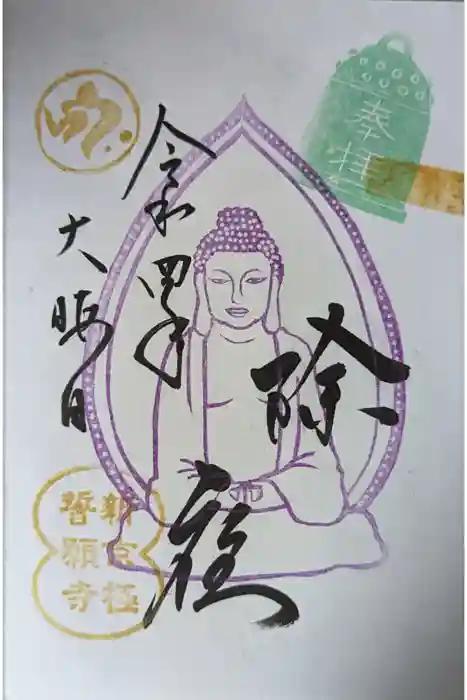 奉拝
除夜
令和四年
大晦日
新京極
誓願寺